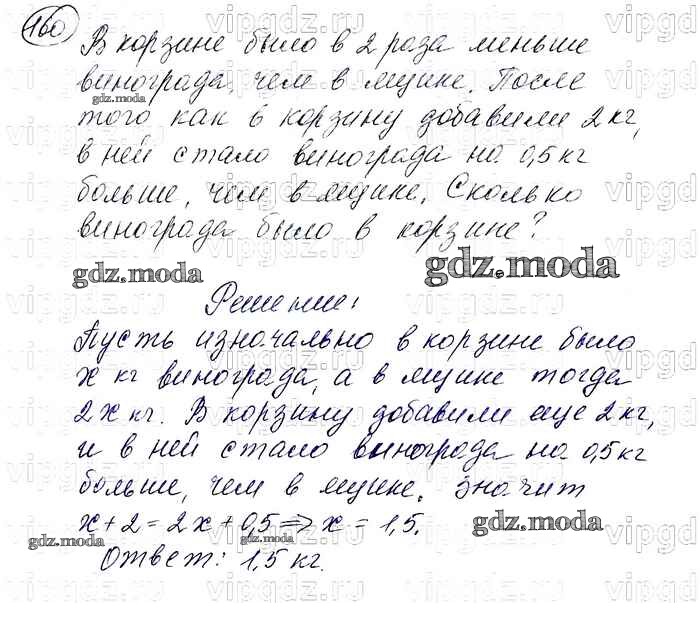 160
В корзине было в 2 раза меньше
винограда, чем в ящике. После
того как в корзину добавили 2 кг,
в ней стало винограда на 0,5 кг
больше, чем в ящике. Сколько
винограда было в корзине?
gdz.moda
gdz.moda
gdz.moda
Решение:
Пусть изначально в корзине было
x кг винограда, а в ящике тогда
2x кг. В корзину добавили еще 2 кг,
и в ней стало винограда на 0,5 кг
больше, чем в ящике. Значит
x + 2 = 2x + 0,5 => x = 1,5.
gdz.moda
gdz.moda
gdz.moda
Ответ: 1,5 кг.
vipgdz.ru